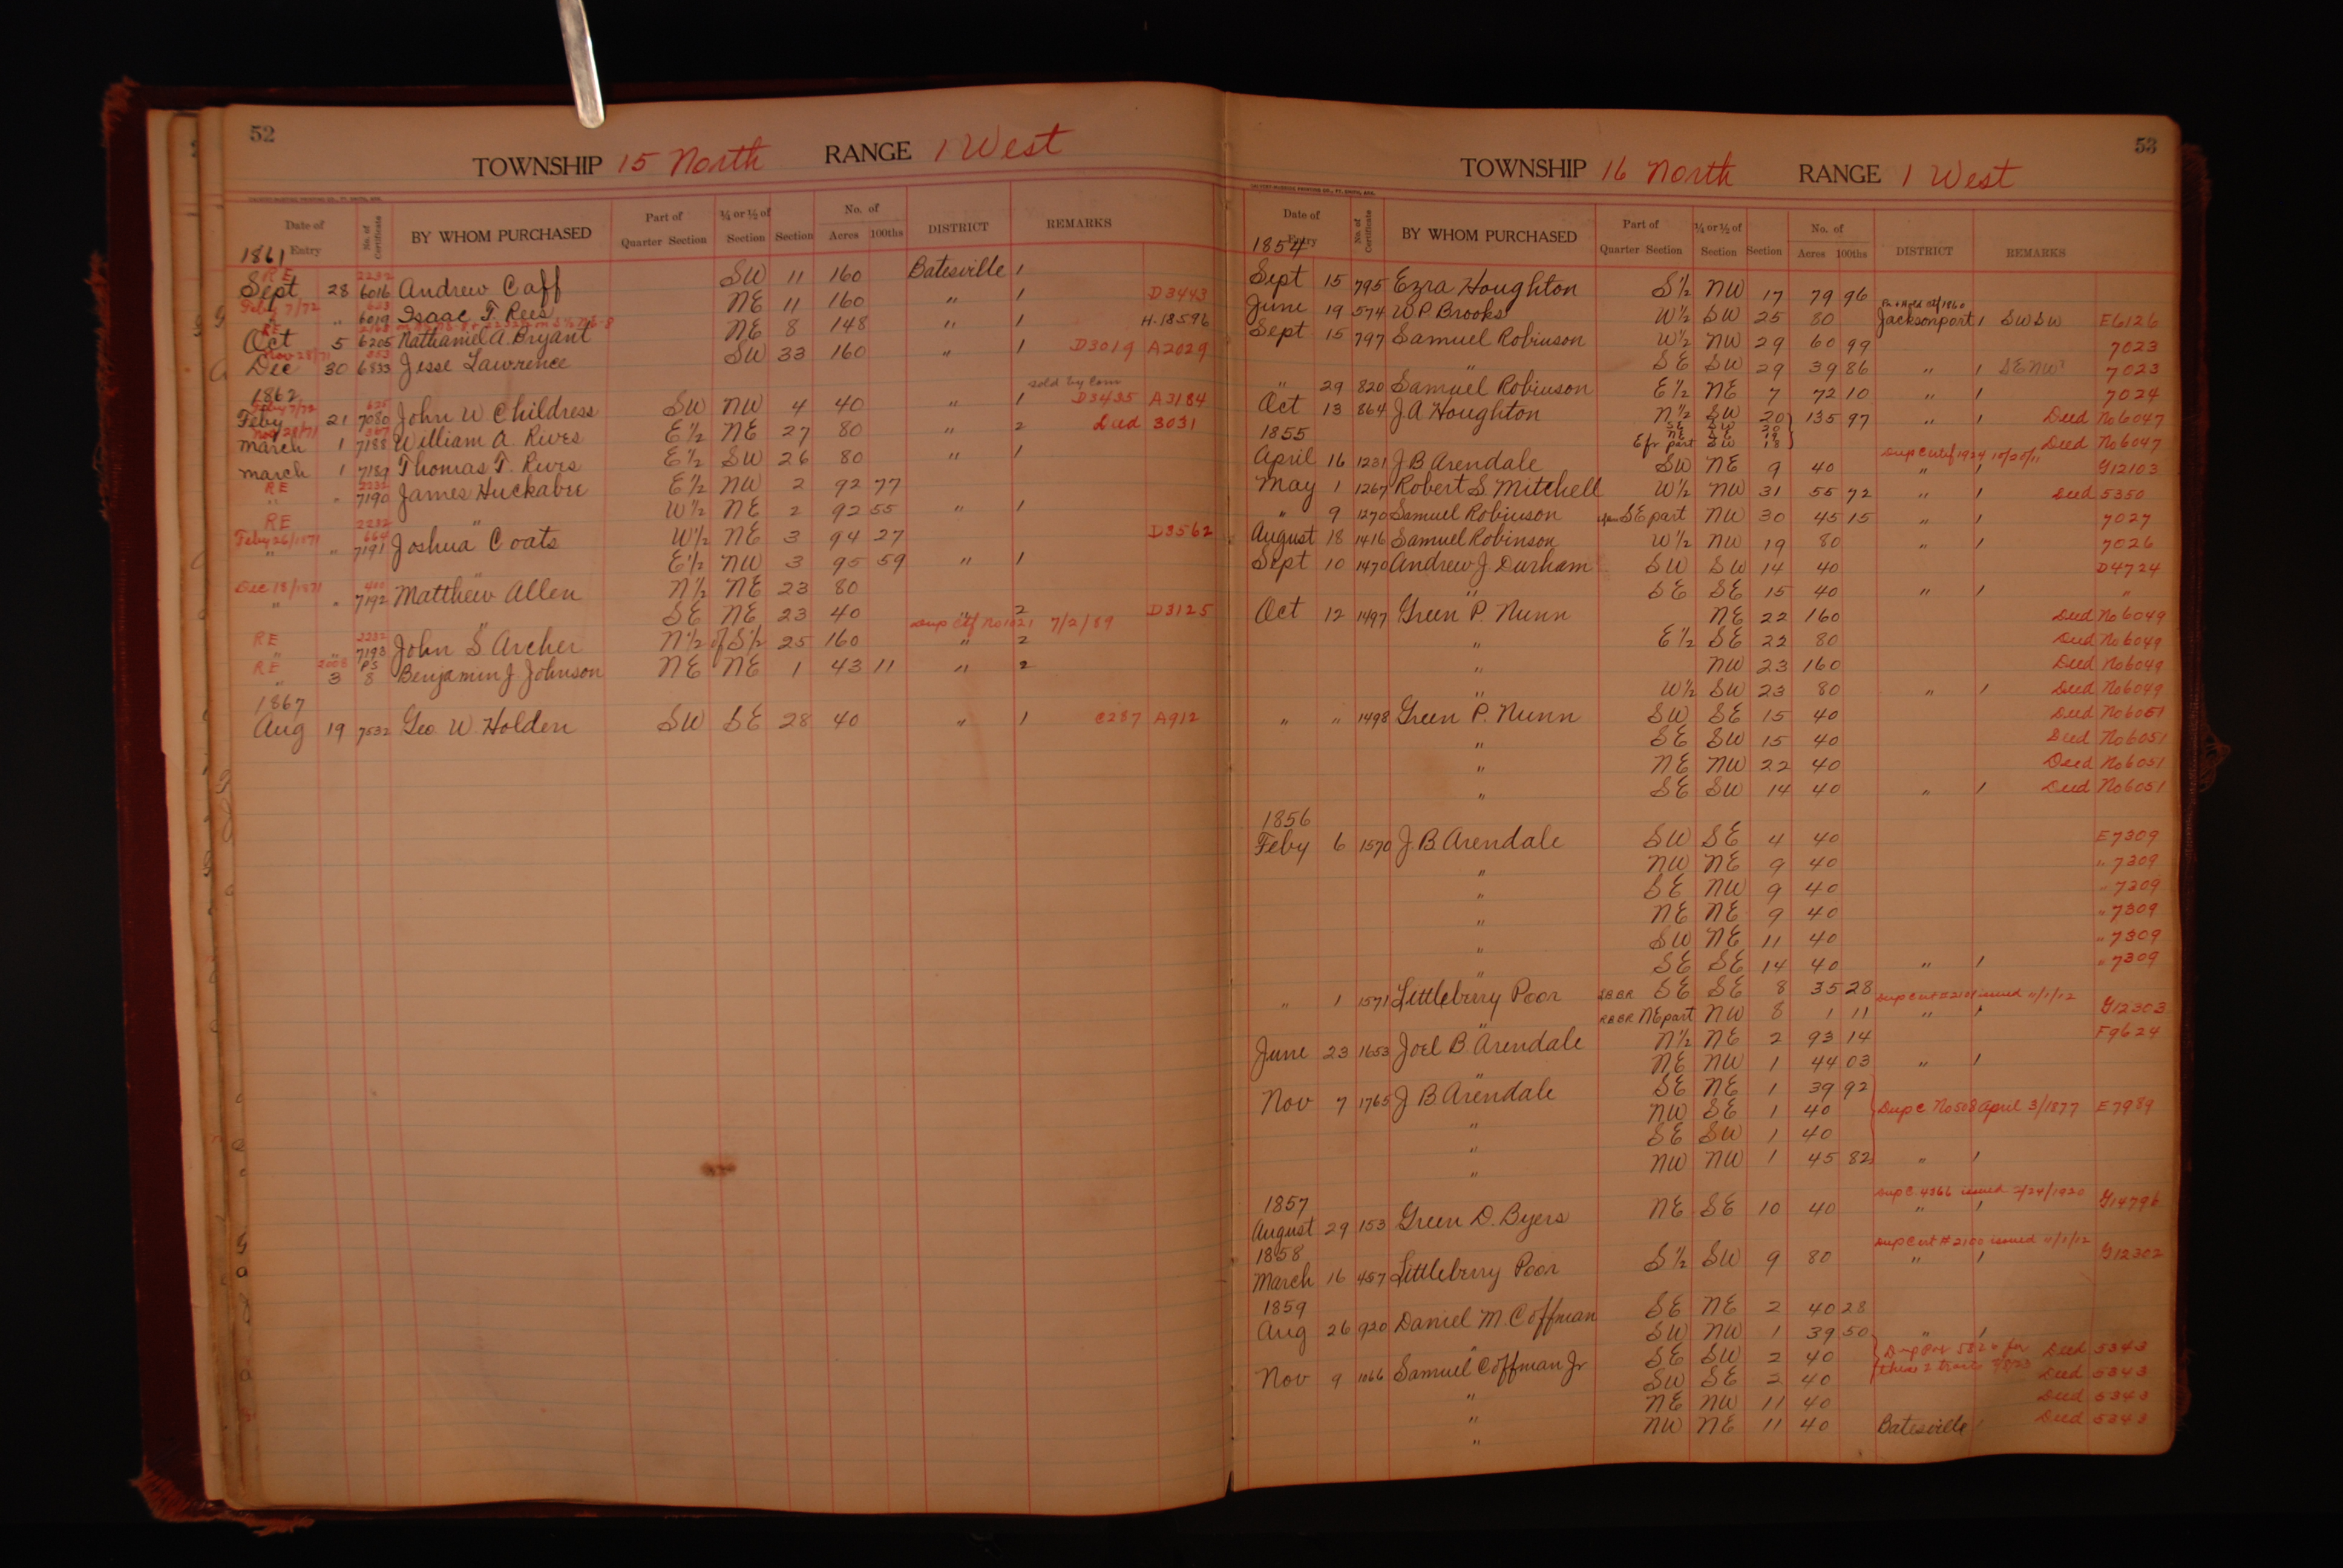 52
TOWNSHIP 15 North RANGE 1 West
Date of Entry No. of Certificate BY WHOM PURCHASED Part of Quarter Section ¼ or ½ of Section Section No. of Acres 100ths DISTRICT REMARKS
1861
RE 2232
Sept 28 6016 Andrew Caff SW 11 160 Batesville 1
Feby 7/72 603
" " 6019 Isaac T. Rees NE 11 160 " 1 D3443
RE
Oct 5 6205 Nathaniel A. Bryant NE 8 148 " 1 H.18596
Nov 28/71 353
Dec 30 6833 Jesse Lawrence SW 33 160 " 1 D3019 A2029
1862 sold by Com
Feby 7/72 625
Feby 21 7080 John W Childress SW NW 4 40 " 1 D3435 A3184
Nov 28/71 307
March 1 7188 William A. Rives E½ NE 27 80 " 2 Deed 3031
March 1 7189 Thomas T. Rives E½ SW 26 80 " 1
RE 2232
" " 7190 James Huckabee E½ NW 2 92 77
" W½ NE 2 92 55 " 1
RE 2232
Feby 26/1871 664
" " 7191 Joshua Coats W½ NE 3 94 27 D3562
" E½ NW 3 95 59 " 1
Dec 18/1871 400
" " 7192 Matthew Allen N½ NE 23 80
" SE NE 23 40 " 2 D3125
Dup Ctf No 1021 7/2/89
RE 2232
" " 7193 John S Archer N½ of S½ 25 160 " 2
RE 2008 PS
" 3 8 Benjamin J Johnson NE NE 1 43 11 " 2
1867
Aug 19 7532 Geo. W. Holden SW SE 28 40 " 1 C287 A912
53
TOWNSHIP 16 North RANGE 1 West
Date of Entry No. of Certificate BY WHOM PURCHASED Part of Quarter Section ¼ or ½ of Section Section No. of Acres 100ths DISTRICT REMARKS
1854
Sept 15 795 Ezra Houghton S½ NW 17 79 96
June 19 574 W.P. Brooks W½ SW 25 80 Jacksonport 1 SWSW E6126
Sept 15 797 Samuel Robinson W½ NW 29 60 99 7023
" SE SW 29 39 86 " 1 SENW? 7023
" 29 820 Samuel Robinson E½ NE 7 72 10 " 1 7024
Oct 13 864 J.A. Houghton N½ SW 20 135 97 " 1 Deed No6047
SE SW 20
NE SE 19
1855 E fr part SW 18 Deed No6047
Dup Certif 1924 10/20/11
April 16 1231 J.B. Arendale SW NE 9 40 " 1 G12103
May 1 1267 Robert S. Mitchell W½ NW 31 55 72 " 1 Deed 5350
" 9 1270 Samuel Robinson SE part NW 30 45 15 " 1 7027
August 18 1416 Samuel Robinson W½ NW 19 80 " 1 7026
Sept 10 1470 Andrew J. Durham SW SW 14 40 D4724
" SE SE 15 40 " 1 "
Oct 12 1497 Green P. Nunn NE 22 160 Deed No6049
" E½ SE 22 80 Deed No6049
" NW 23 160 Deed No6049
" W½ SW 23 80 " 1 Deed No6049
" " 1498 Green P. Nunn SW SE 15 40 Deed No6051
" SE SW 15 40 Deed No6051
" NE NW 22 40 Deed No6051
" SE SW 14 40 " 1 Deed No6051
1856
Feby 6 1570 J.B. Arendale SW SE 4 40 E7309
" NW NE 9 40 " 7309
" SE NW 9 40 " 7309
" NE NE 9 40 " 7309
" SW NE 11 40 " 7309
" SE SE 14 40 " 1 " 7309
" 1 1571 Littleberry Poor SE SE 8 35 28
Dup Cert #2101 issued 11/1/12
" RBBR NE part NW 8 1 11 " 1 G12303
June 23 1653 Joel B Arendale N½ NE 2 93 14 F9624
" NE NW 1 44 03 " 1
Nov 7 1765 J B. Arendale SE NE 1 39 92
" NW SE 1 40 Dup C No508 April 3/1877 E7989
" SE SW 1 40
" NW NW 1 45 82 " 1
1857 Dup C. 4366 issued 2/24/1920
August 29 153 Green D. Byers NE SE 10 40 " 1 G14796
1858 Dup Cert #2100 issued 11/1/12
March 16 457 Littleberry Poor S½ SW 9 80 " 1 G12302
1859
Aug 26 920 Daniel M. Coffman SE NE 2 40 28
" SW NW 1 39 50 " 1
Nov 9 1066 Samuel Coffman Jr SE SW 2 40 Deed 5343
" SW SE 2 40 these 2 tracts Deed 5343
" NE NW 11 40 Deed 5343
" NW NE 11 40 Batesville 1 Deed 5343